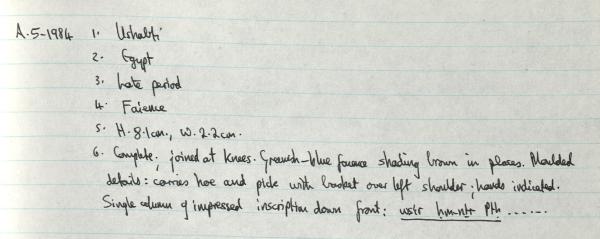 A.5-1984 1. Ushabti
2. Egypt
3. Late period
4. Faience
5. H. 8.1cm., W. 2.2cm.
6. Complete; joined at knees. Greenish-blue faience shading brown in places. Moulded
details: carries hoe and pick with basket over left shoulder; hands indicated.
Single column of impressed inscription down front: wsir ḥm-nṯr Ptḥ ......